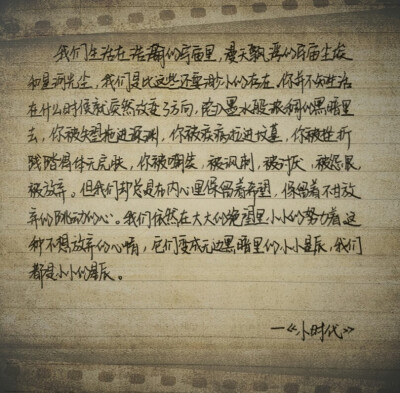 我们生活在浩瀚的宇宙里，漫天飘荡的宇宙尘埃
和星河光尘，我们是比这些还要渺小的存在。你并不知生活
在什么时候就突然改变了方向，陷入墨水般浓稠的黑暗里
去，你被失望拖进深渊，你被疾病拉进坟墓，你被挫折
践踏得体无完肤，你被嘲笑、被讽刺、被讨厌、被怨恨、
被放弃。但我们却总是在内心里保留着希望，保留着不甘放
弃的跳动的心。我们依然在大大的绝望里小小的努力着。这
种不想放弃的心情，它们变成无边黑暗里的小小星辰，我们
都是小小的星辰。
—《小时代》